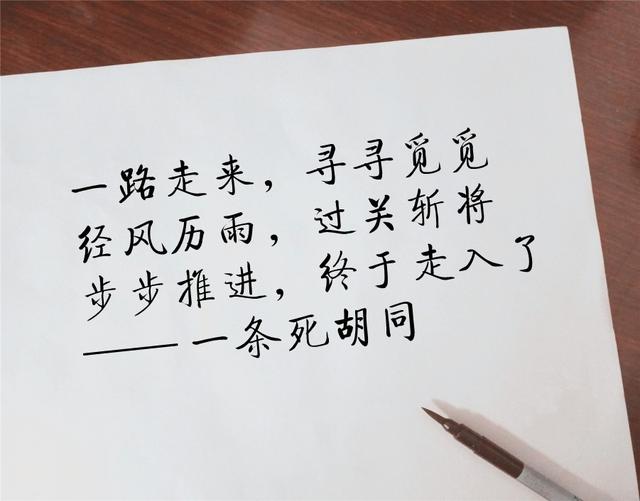 一路走来，寻寻觅觅
经风历雨，过关斩将
步步推进，终于走入了
——一条死胡同